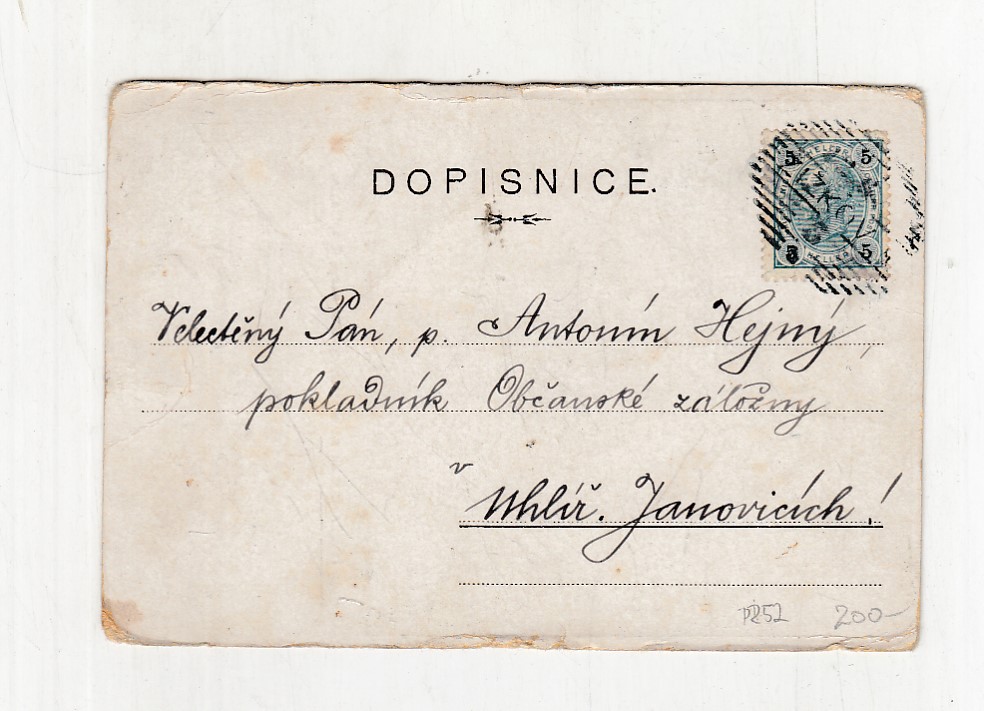 DOPISNICE.
5 5
5 5
HELLER
Velectěný Pán, p. Antonín Hejný,
pokladník Občanské záložny
v
Uhlíř. Janovicích!
PR52 200-